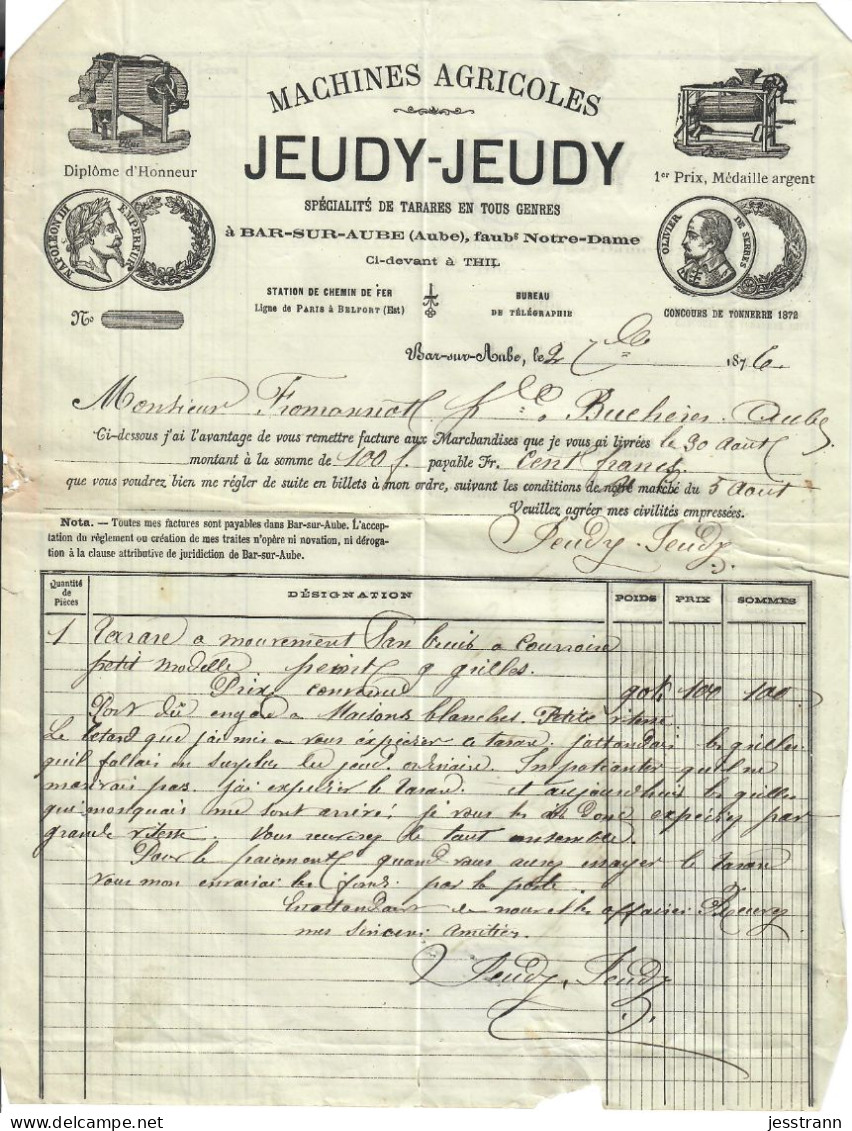 MACHINES AGRICOLES
JEUDY-JEUDY
Diplôme d'Honneur
1er Prix, Médaille argent
SPÉCIALITÉ DE TARARES EN TOUS GENRES
à BAR-SUR-AUBE (Aube), faubg Notre-Dame
Ci-devant à THIL
NAPOLEON III EMPEREUR
OLIVIER DE SERRES
STATION DE CHEMIN DE FER
Ligne de Paris à Belfort (Est)
BUREAU
DE TÉLÉGRAPHIE
CONCOURS DE TONNERRE 1872
No
Bar-sur-Aube, le 2 7bre 1876
Monsieur Buchères Aube
Ci-dessous j'ai l'avantage de vous remettre facture aux Marchandises que je vous ai livrées le 30 Aout
montant à la somme de 100 f. payable Fr. Cent francs
que vous voudrez bien me régler de suite en billets à mon ordre, suivant les conditions de notre marché du 5 Aout
Veuillez agréer mes civilités empressées.
Nota. — Toutes mes factures sont payables dans Bar-sur-Aube. L'accep-
tation du règlement ou création de mes traites n'opère ni novation, ni déroga-
tion à la clause attributive de juridiction de Bar-sur-Aube.
Jeudy-Jeudy
Quantité de Pièces DÉSIGNATION POIDS PRIX SOMMES
1 Tarare a mouvement San bruit a courroire
petit modelle peint 9 grilles.
Prix convenue 90k 100 100
Port dû en gare a Maisons blanches. Petite vitesse
Le retard que j'ai mis a vous expédier ce tarare. j'attandais les grilles
quil fallais en surplus du jeud ordinaire.
pas. j'ai expedier le tarare. et aujourdhuis les grilles
qui monquais me sont arrivé. je vous les ai donc expédiez par
grande vitesse. Vous recevrez le tout ensemble.
Pour le paiement quand vous aurez essayer le tarare
vous mon enverai les fonds par la poste.
En attandant de nouvelles affaires Recevez
mes sincere amitiés.
Jeudy-Jeudy
jesstrann